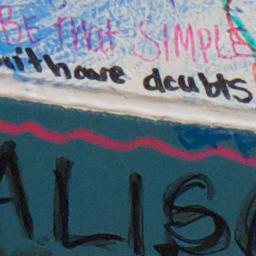 BE THAT SIMPLE
withoure doubts
ALIS